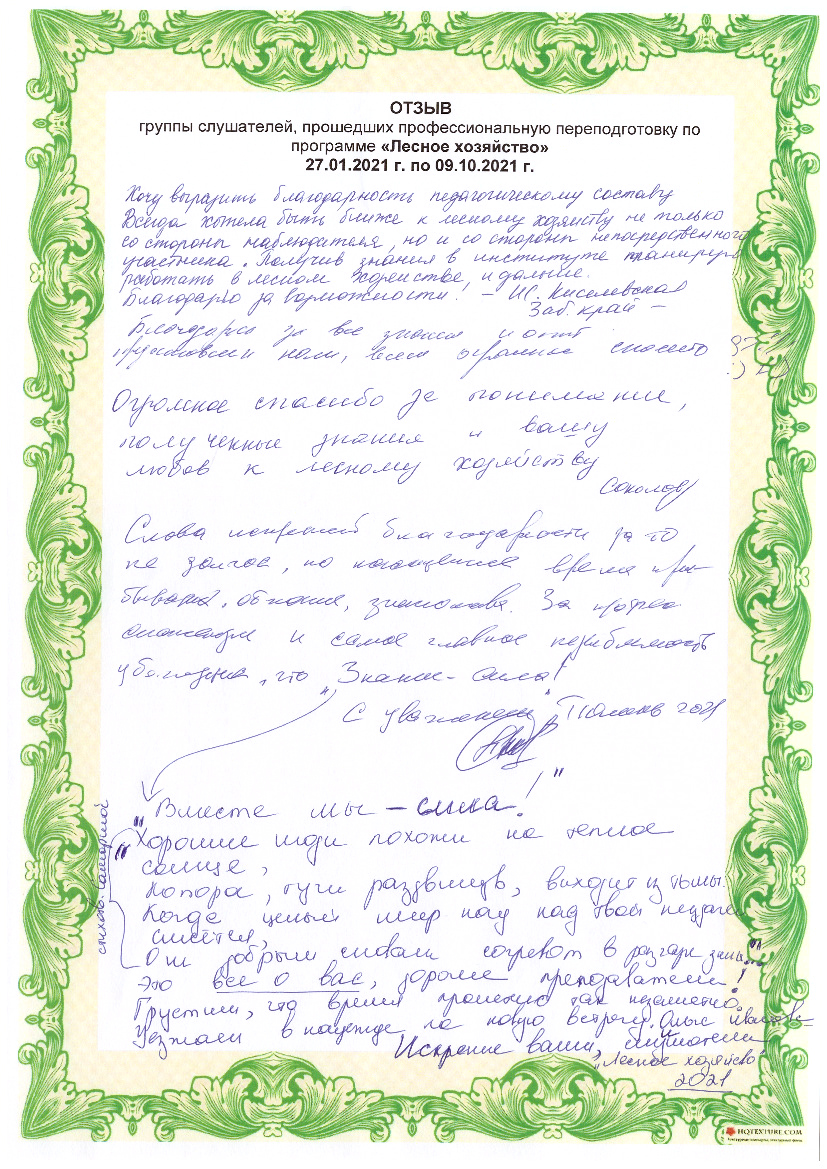 ОТЗЫВ
группы слушателей, прошедших профессиональную переподготовку по
программе «Лесное хозяйство»
27.01.2021 г. по 09.10.2021 г.
Хочу выразить благодарность педагогическому составу
Всегда хотела быть ближе к лесному хозяйству не только
со стороны наблюдателя, но и со стороны непосредственного
участника. Получив знания в институте планирую
работать в лесном хозяйстве, и дальше.
Благодарю за возможности! – И.С. Киселевская
Заб. край –
Благодарю за все знания и опыт
нам, всем огромное спасибо
:)
Огромное спасибо за понимание,
полученные знания и вашу
любов к лесному хозяйству
Соколов
Слова искренней благодарности за то
не долгое, но насыщенное время
общения, знакомства. За
и самое главное незыблемость
убеждения, что "Знание – сила!"
С уважением,
"Вместе мы – сила!"
стихотв.
"Хорошие люди похожи на теплое
солнце,
Которое, тучи раздвинув, выходит из тьмы.
Когда целый мир над твоей неудачей
смеётся,
Они добрыми словами согревают в разгаре зимы..."
Это все о вас, дорогие преподаватели!
Грустим, что время пролетело так незаметно.
Уезжаем в надежде на новую встречу.
Искренне ваши, слушатели
"Лесное хозяйство"
2021
HQTEXTURE.COM